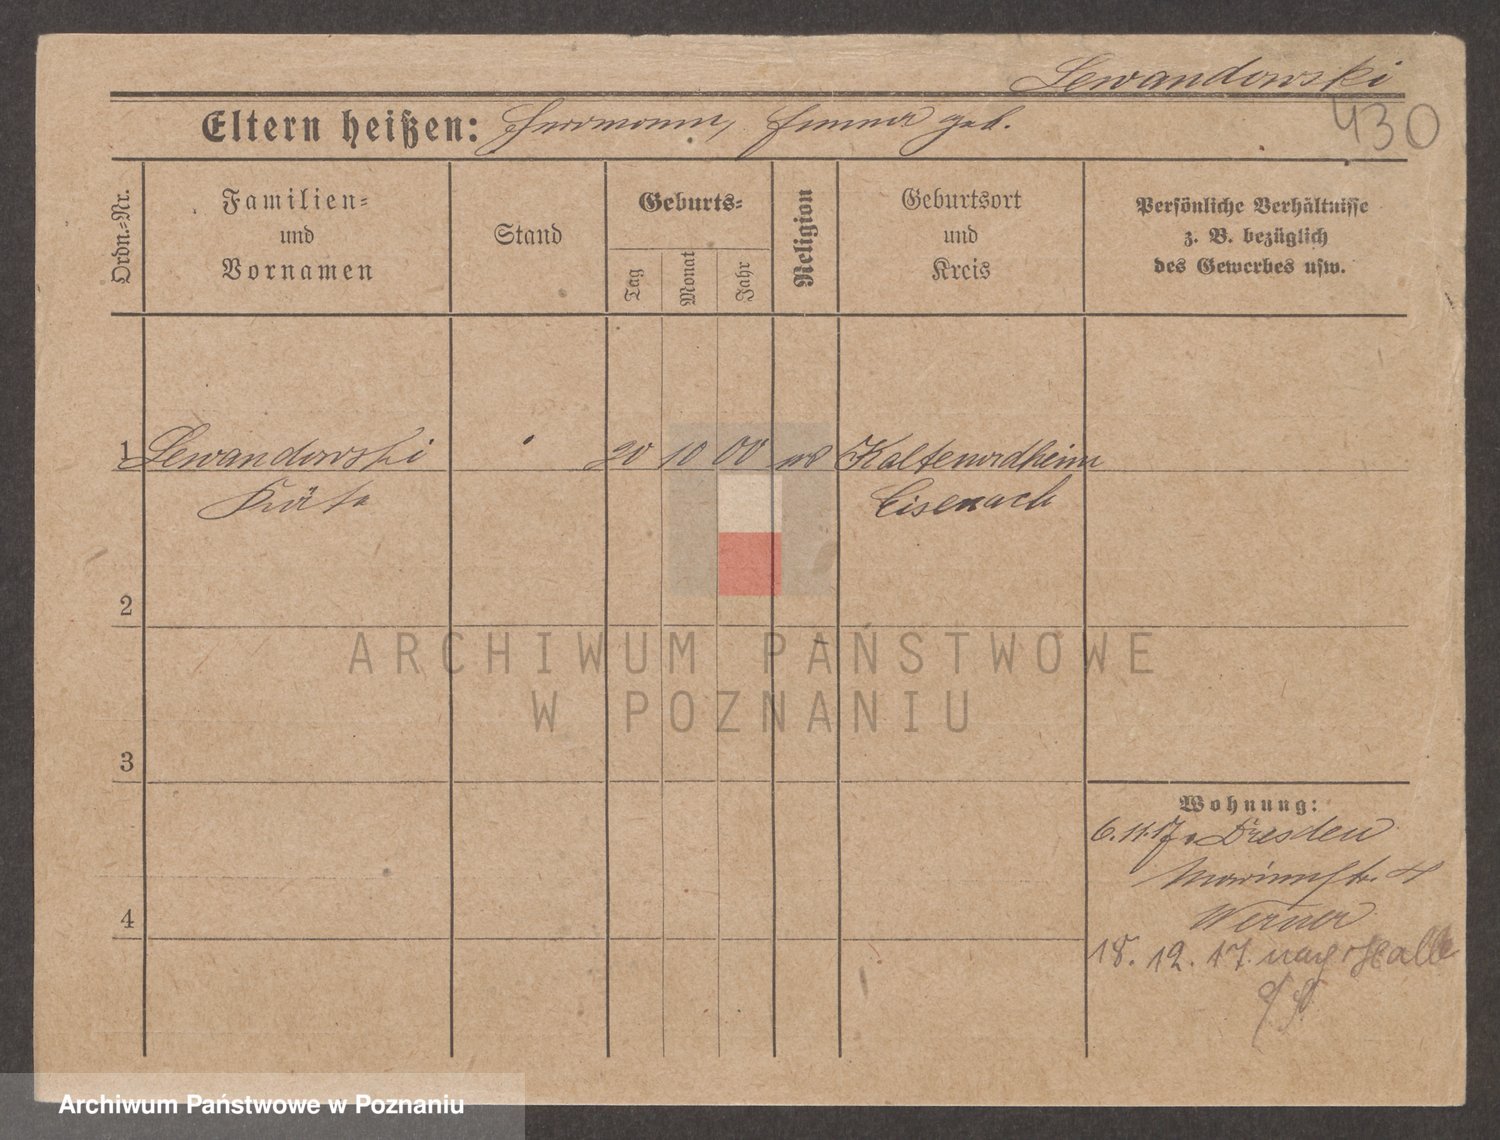 Lewandowski
430
Eltern heißen: Hermann, Emma geb.
Ordn.-Nr.
Familien-
und
Vornamen
Stand
Geburts-
Tag
Monat
Jahr
Religion
Geburtsort
und
Kreis
Persönliche Verhältnisse
z. B. bezüglich
des Gewerbes usw.
1 Lewandowski 20 10 00 Kaltennordheim
Käte Eisenach
2
ARCHIWUM PAŃSTWOWE
W POZNANIU
3
Wohnung:
6.11.17 v Dresden
4
Werner
18. 12. 17. nach Halle
Archiwum Państwowe w Poznaniu